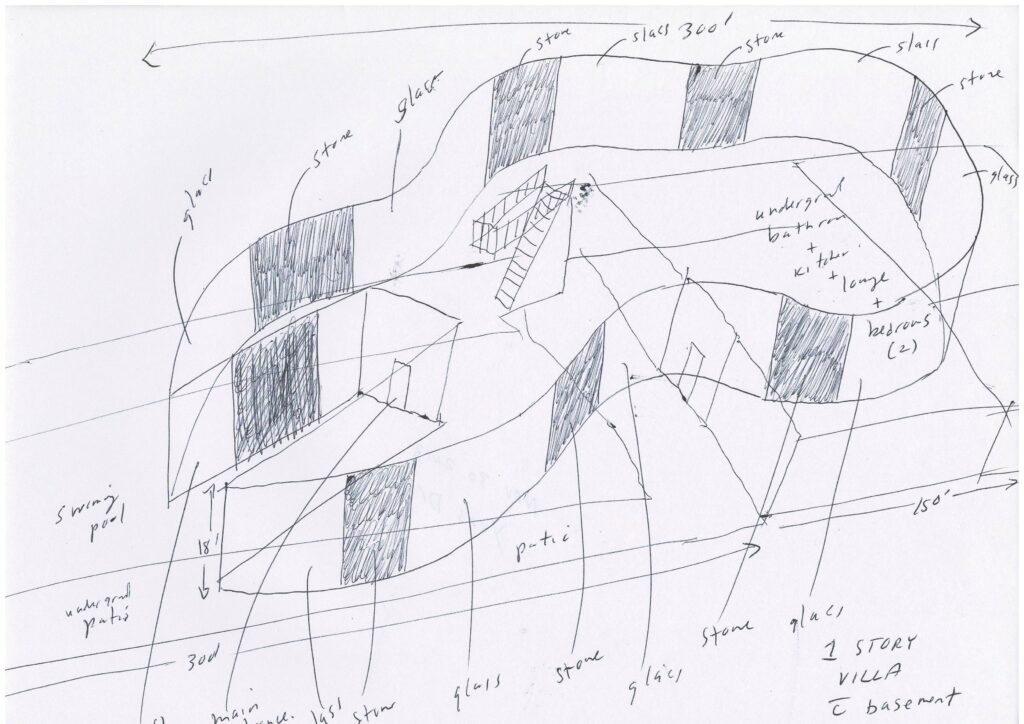 300'
stone
glass
stone
glass
stone
glass
stone
glass
glass
undergrd
bathroom
+
kitchen
+
lounge
+
bedrooms
(2)
swimming
pool
18'
patio
150'
undergrd
patio
300'
main
stone
glass
stone
glass
stone
glass
1 STORY
VILLA
c̄ basement